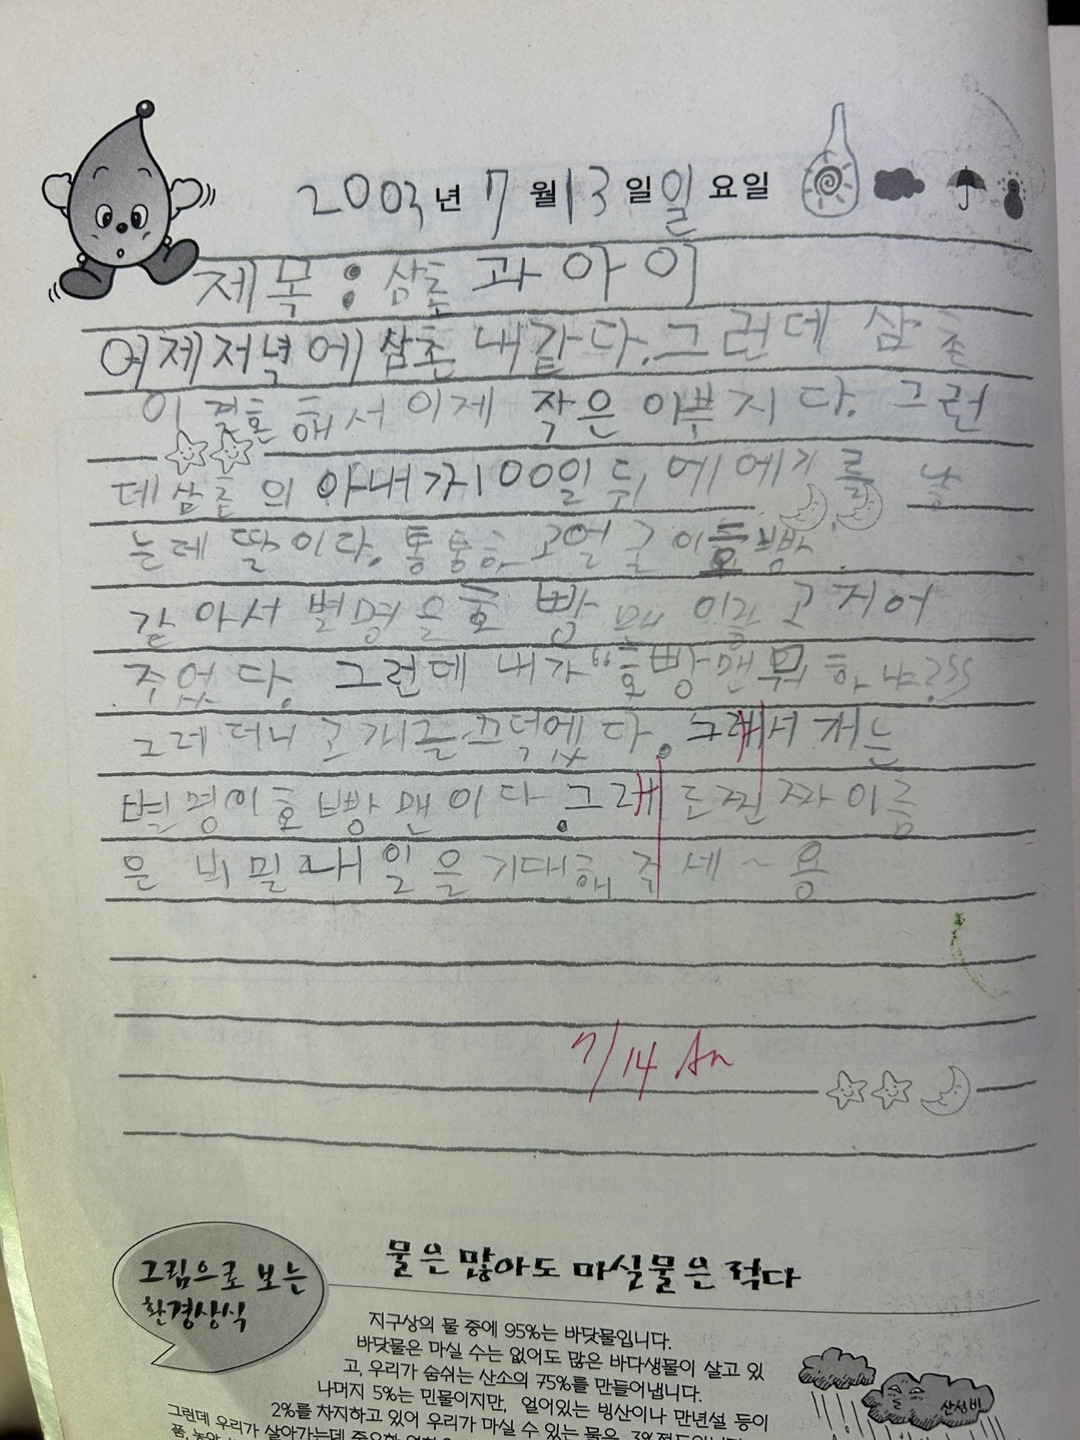 2003년 7월 13일 일요일
제목 : 삼촌과 아이
어제저녁에 삼촌내갔다. 그런데 삼촌
이 결혼해서 이제 작은 아빠지다. 그런
데 삼촌의 아내가 100일 뒤에 에기를 낳
는데 딸이다. 통통하고 얼굴이 호빵
같아서 별명을 호빵맨 이라고 지어
주었다. 그런데 내가 "호빵맨 뭐하냐?"
그레더니 고개를 끄덕엤다. 그래서 저는
별명이 호빵맨이다. 그래도 진짜 이름
은 비밀 내일을 기대해 주세~용
7/14
그림으로 보는
환경상식
물은 많아도 마실물은 적다
지구상의 물 중에 95%는 바닷물입니다.
바닷물은 마실 수는 없어도 많은 바다생물이 살고 있
고, 우리가 숨쉬는 산소의 75%를 만들어냅니다.
나머지 5%는 민물이지만, 얼어있는 빙산이나 만년설 등이
2%를 차지하고 있어 우리가 마실 수 있는 물은 3%정도입니다.
그런데 우리가 살아가는데 중요한
산성비